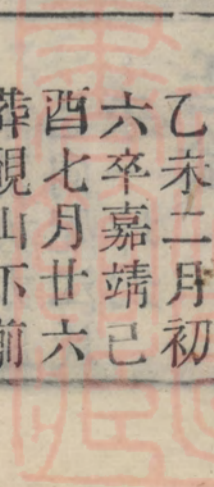 乙未二月初
六卒嘉靖己
酉七月廿六
葬硯山下前